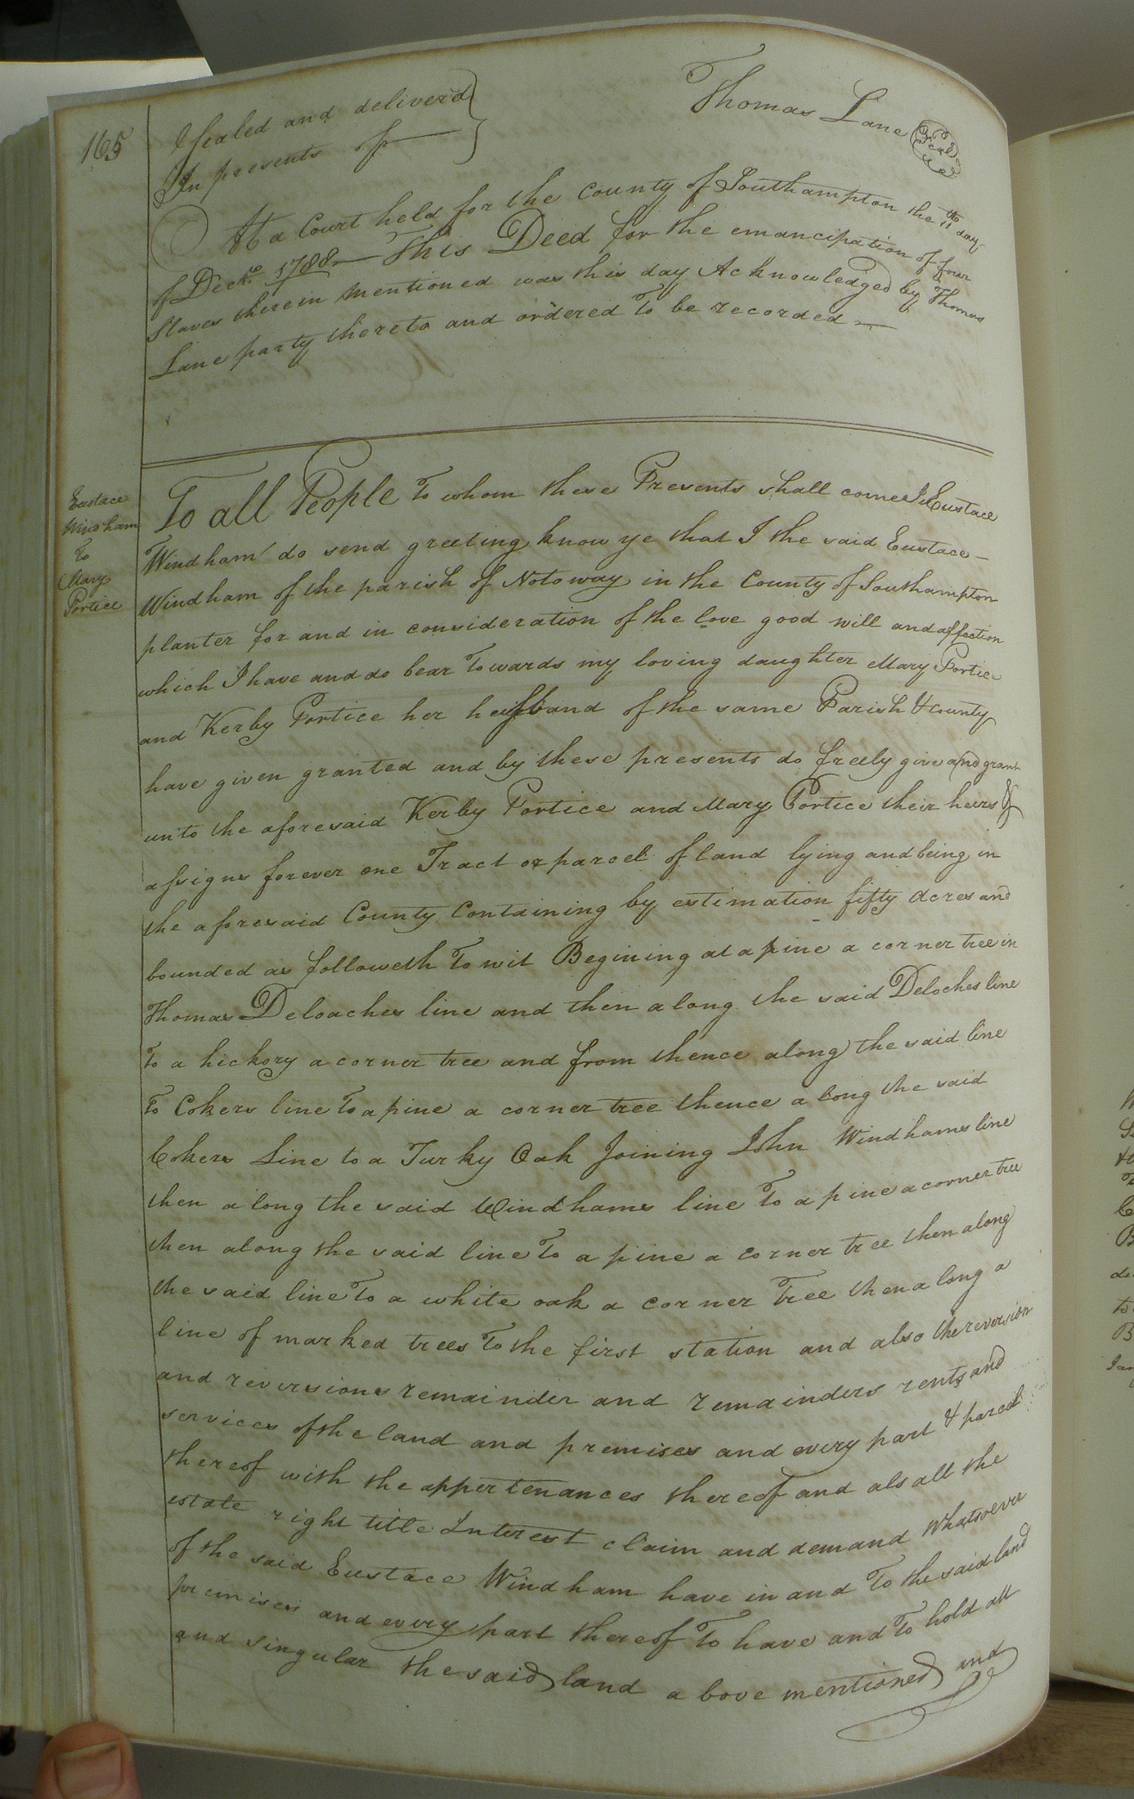 165
Sealed and deliver'd
In presents of
Thomas Lane
Seal
At a Court held for the county of Southampton the 11th day
of Decr. 1788 — This Deed for the emancipation of four
Slaves therein mentioned was this day Acknowledged by Thomas
Lane party thereto and ordered To be recorded —
Eustace
Windham
To
Mary
Portice
To all People To whom these Presents shall come I Eustace
Windham do send greeting know ye that I the said Eustace —
Windham of the parish of Notoway in the County of Southampton
planter for and in consideration of the love good will and affection
which I have and do bear Towards my loving daughter Mary Portice
and Kerby Portice her husband of the same Parish & County
have given granted and by these presents do freely give and grant
unto the aforesaid Kerby Portice and Mary Portice their heirs &
assigns forever one Tract or parcel of land lying and being in
the aforesaid County Containing by estimation fifty Acres and
bounded as followeth To wit Begining at a pine a corner tree in
Thomas Deloaches line and then along the said Deloches line
To a hickory a corner tree and from thence along the said line
To Cokers line To a pine a corner tree thence along the said
Cokers Line to a Turky Oak Joining John Windhams line
then along the said Windhams line To a pine a corner tree
then along the said line To a pine a corner tree then along
the said line To a white oak a corner Tree then along a
line of marked trees To the first station and also the reversion
and reversions remainder and remainders rents and
services of the land and premises and every part & parcel
thereof with the appertenances thereof and als all the
estate right title Interest claim and demand Whatsoever
of the said Eustace Windham have in and To the said land
premises and every part thereof To have and To hold all
and singular the said land above mentioned and